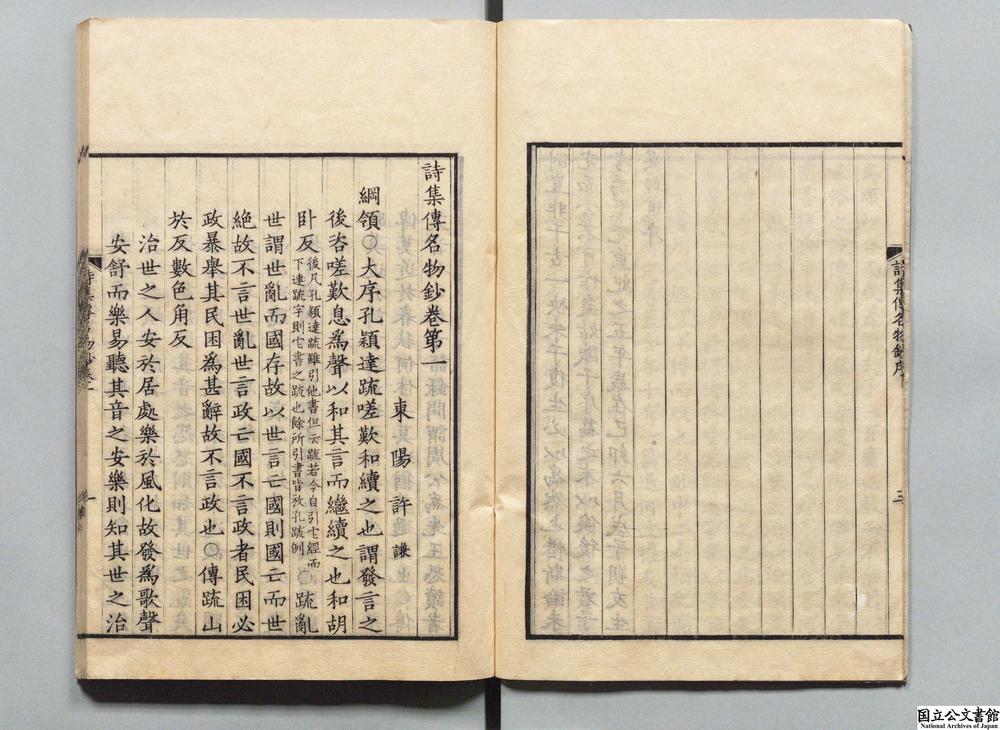 詩集傳名物鈔序
三
詩集傳名物鈔卷第一
東陽許謙
綱領○大序孔穎達疏嗟歎和續之也謂發言之
後咨嗟歎息爲聲以和其言而繼續之也和胡
卧反後凡孔穎達疏雖引他書但云疏若今自引它經而
下連疏字則它書之疏也餘所引書皆放孔疏例○疏亂
世謂世亂而國存故以世言亡國則國亡而世
絕故不言世亂世言政亡國不言政者民困必
政暴舉其民困爲甚辭故不言政也○傳疏山
於反數色角反
治世之人安於居處樂於風化故發爲歌聲
安舒而樂易聽其音之安樂則知其世之治
詩集傳名物鈔卷一
一
国立公文書館
National Archives of Japan